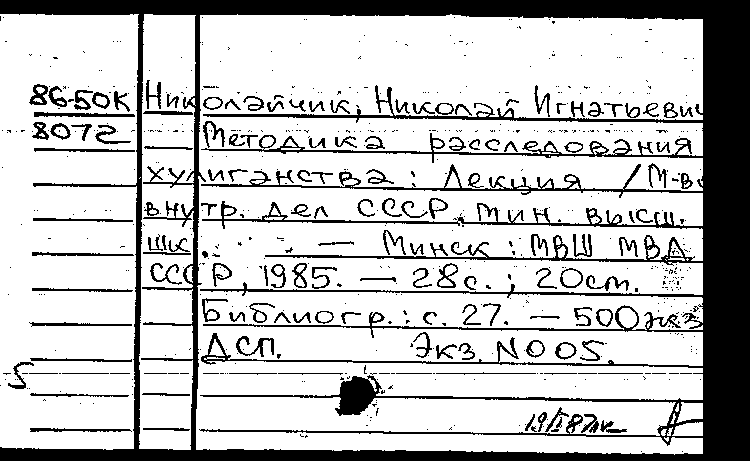 86-50К Николайчик, Николай Игнатьевич
8072 Методика расследования
хулиганства: Лекция / М-во
внутр. дел СССР, Мин. высш.
шк. — Минск: МВШ МВД
СССР, 1985. — 28с.; 20см.
Библиогр.: с. 27. — 500экз
ДСП. Экз. N005.